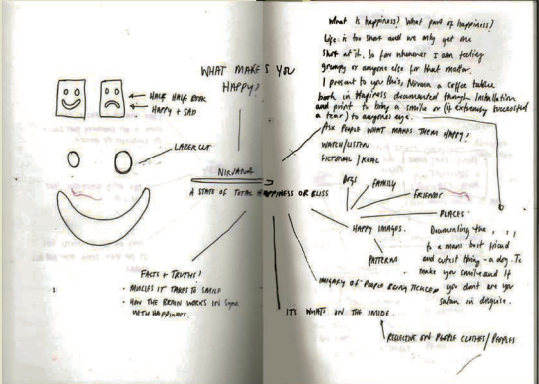 WHAT MAKES YOU
HAPPY?
HALF HALF BOOK
HAPPY + SAD
LASER CUT
NIRVANA
A STATE OF TOTAL HAPPINESS OR BLISS
FACTS + TRUTHS!
• MUSCLES IT TAKES TO SMILE
• HOW THE BRAIN WORKS IN SYNC
WITH HAPPINESS.
What is happiness? What part of happiness?
Life is too short and we only get one
shot at it. So for whenever I am feeling
grumpy or anyone else for that matter.
I present to you this, Nirvana a coffee table
book in Hapiness documented though installation
and print to bring a smile or (if extremely successful
a tear) to anyones eye.
ASK PEOPLE WHAT MAKES THEM HAPPY!
WATCH/LISTEN
FICTIONAL / REAL
DOGS
FAMILY
FRIENDS
PLACES
HAPPY IMAGES.
PATTERN
Documenting the
to a mans best friend
and cutest thing - a dog. To
make you smile and if
you dont are you
satan in disguise.
IMAGARY OF PEOPLE BEING TICKLED
ITS WHATS ON THE INSIDE.
REFLECTIVE ON PEOPLE CLOTHES/PEOPLES